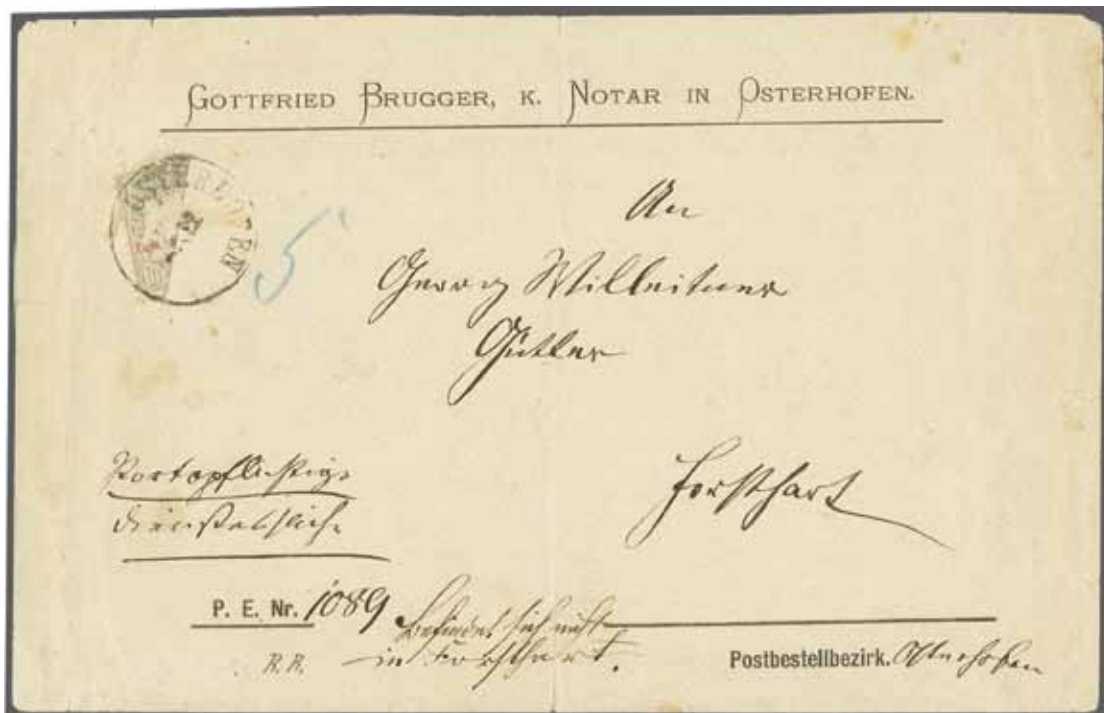 GOTTFRIED BRUGGER, K. NOTAR IN OSTERHOFEN.
OSTERHOFEN
5
An
Georg Willeitner
Gütler
Portopflichtige
Dienstessache
Forsthart
P. E. Nr. 1089
befindet sich nicht
in Forsthart.
R.R.
Postbestellbezirk. Osterhofen